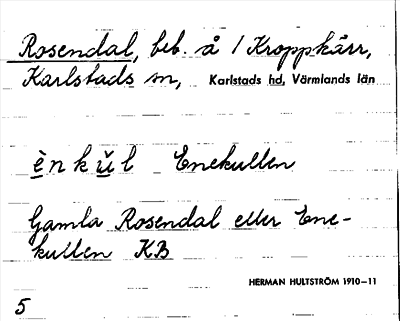 Rosendal, beb. å 1 Kroppkärr,
Karlstads sn, Karlstads hd, Värmlands län
ènkŭl Enekullen
Gamla Rosendal eller Ene-
kullen KB
HERMAN HULTSTRÖM 1910–11
5